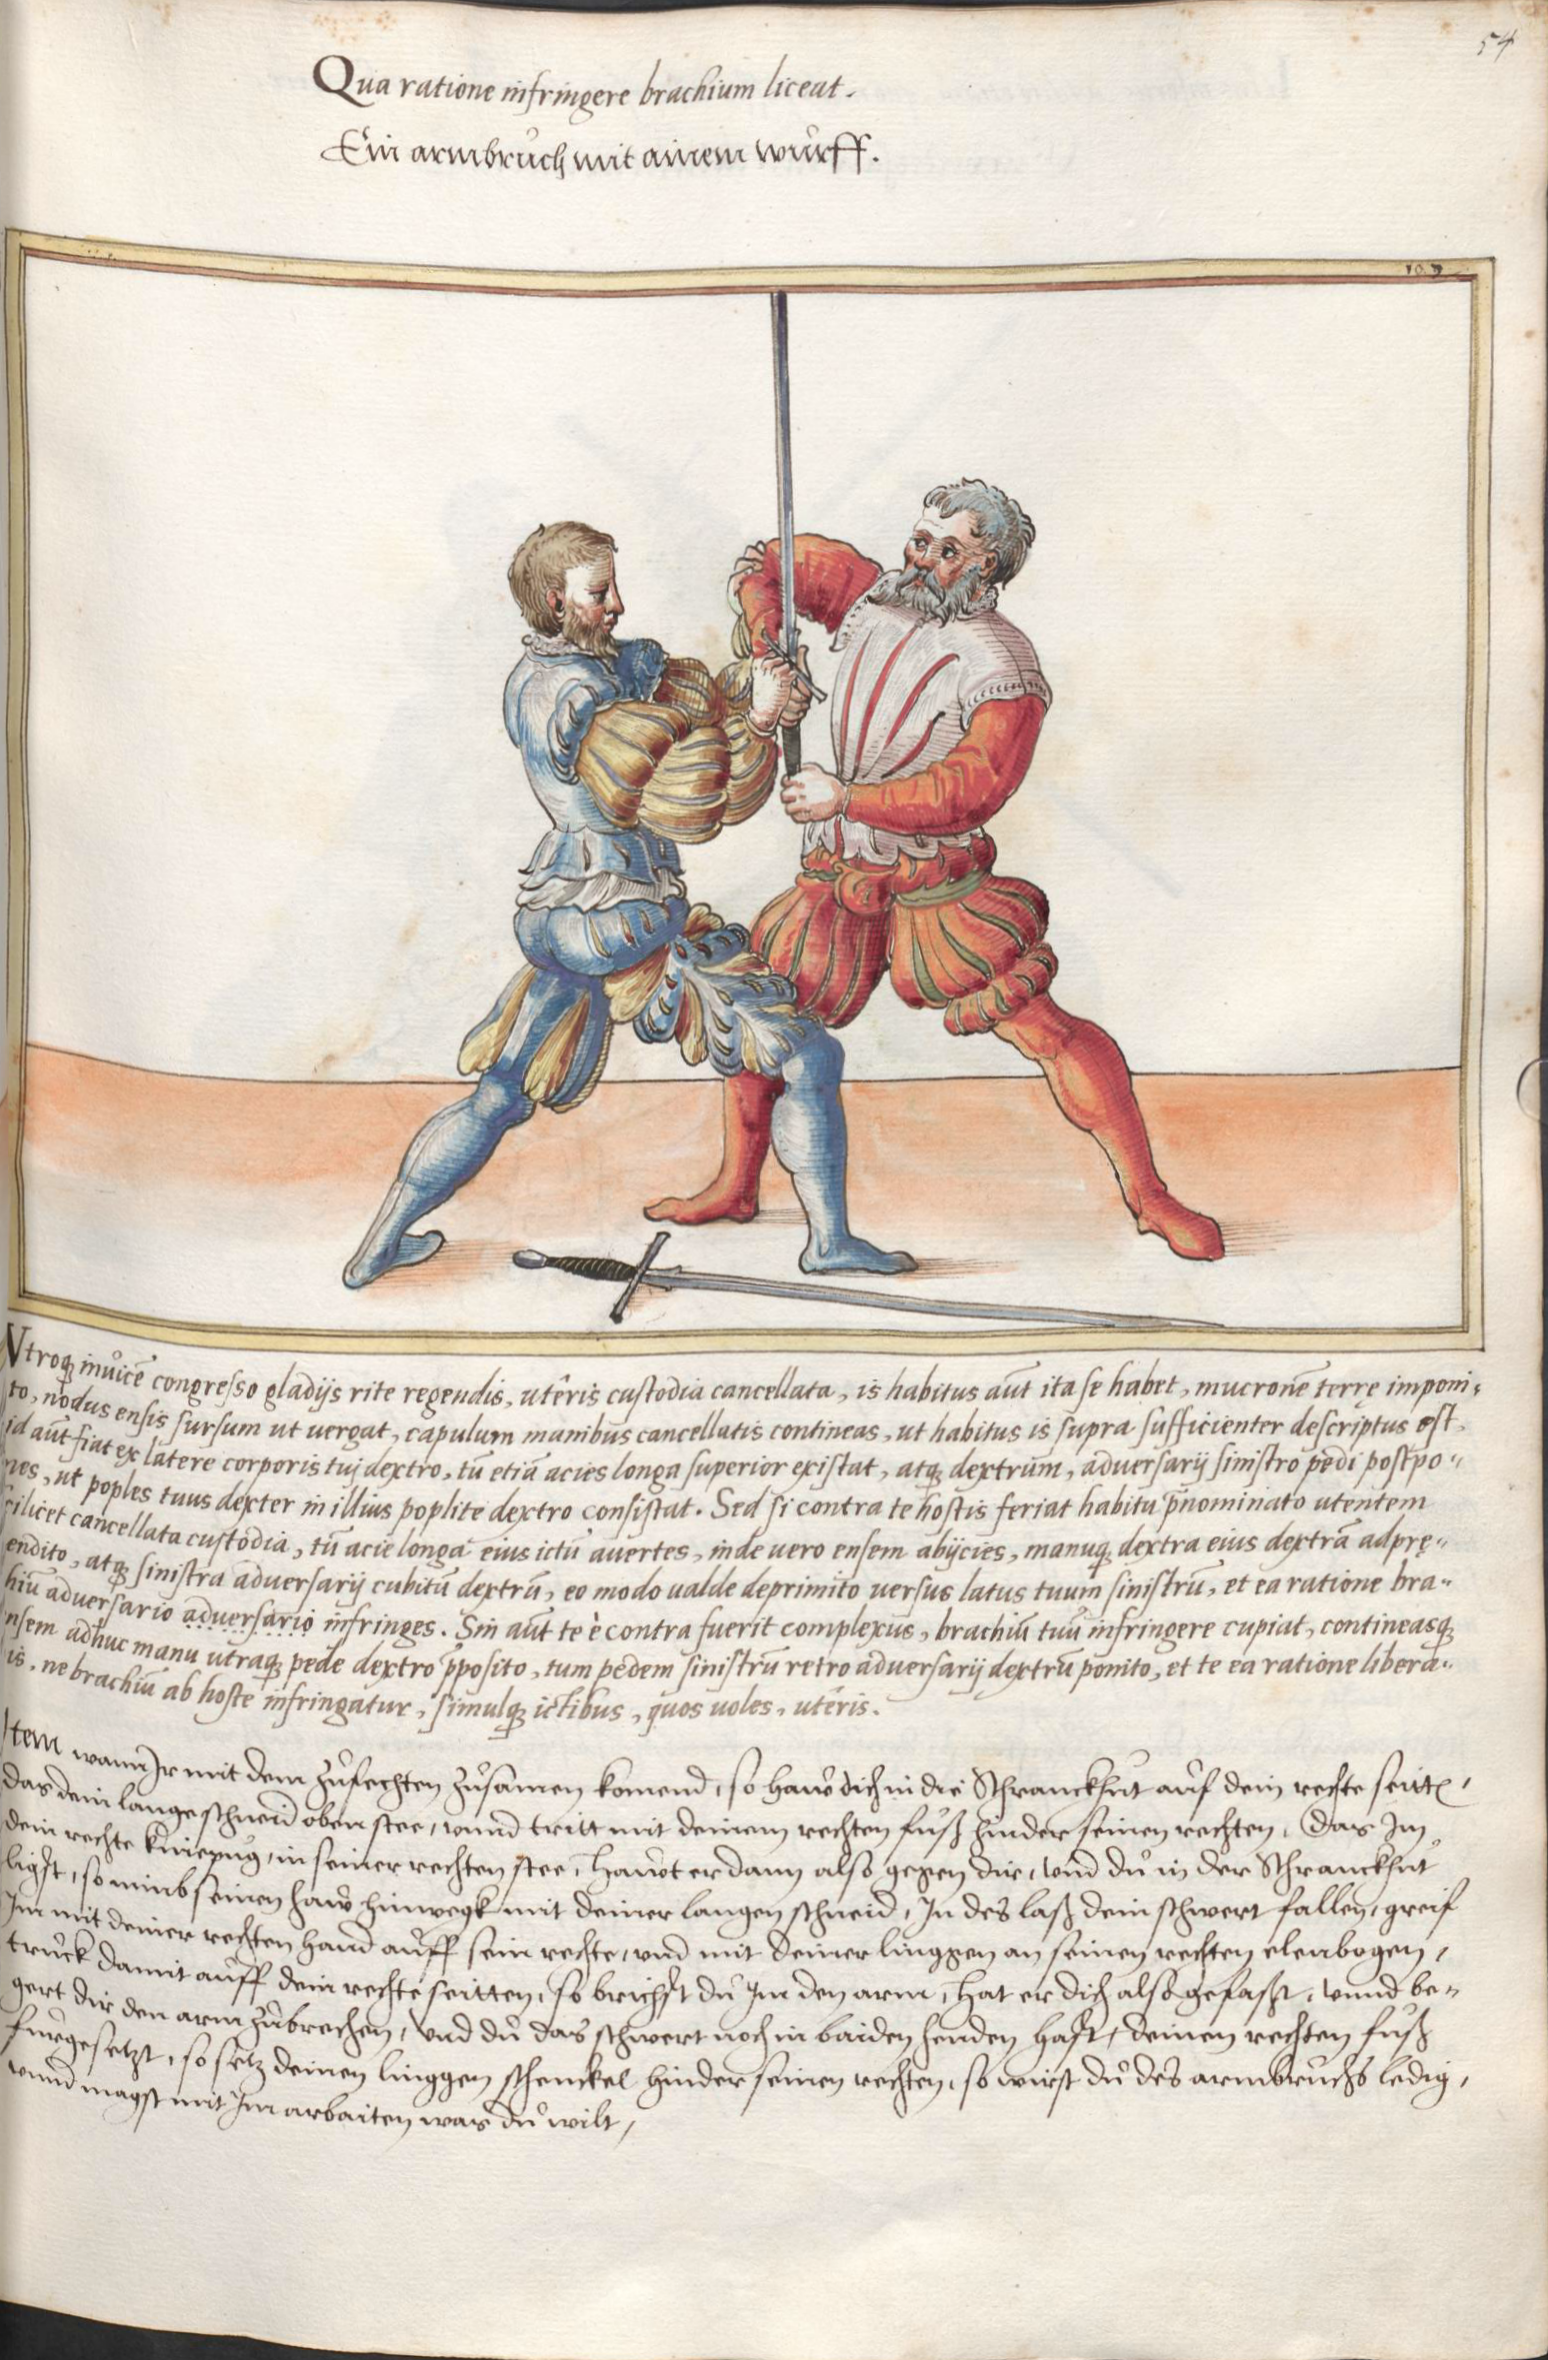 54
Qua ratione infringere brachium liceat.
Ein armbrůch mit ainem wůrff.
Vtroq₃ inuicē congresso gladijs rite regendis, utêris custodia cancellata, is habitus aūt ita se habet, mucronē terrę imponi-
to, nodus ensis sursum ut uergat, capulum manibus cancellatis contineas, ut habitus is supra sufficienter descriptus est.
id aūt fiat ex latere corporis tuj dextro, tū etiā acies longa superior existat, atq₃ dextrum, aduersarij sinistro pedi postpo-
nes, ut poples tuus dexter in illius poplite dextro consistat. Sed si contra te hostis feriat habitu p̄nominato utentem
scilicet cancellata custodia, tū acie longa eius ictū auertes, inde uero ensem abijcies, manuq₃ dextra eius dextrā adprę-
endito, atq₃ sinistra aduersarij cubitū dextrū, eo modo ualde deprimito uersus latus tuum sinistrū, et ea ratione bra-
hiū aduersario aduersario infringes. Sin aūt te è contra fuerit complexus, brachiū tuū infringere cupiat, contineasq₃
nsem adhuc manu utraq₃ pede dextro p̄posito, tum pedem sinistrū retro aduersarij dextrū ponito, et te ea ratione libera-
is, ne brachiū ab hoste infringatur, simulq₃ ictibus, quos uoles, utêris.
Item wann Jr mit dem zůfechten zůsamen komend, so haw dich in die Schranckhůt aůf dein rechte seitt,
das dein lange schneid oben stee, vnnd tritt mit deinem rechten fůß hinder seinen rechten, Das Im
dein rechte kniepůg, in seiner rechten stee, Hawt er dann also gegen dir, vnd dů in der Schranckhůt
ligst, so nimb seinen haw hinwegk mit deiner langen schneid, In des laß dein schwert fallen, greif
Im mit deiner rechten hand aůff sein rechte, vnd mit deiner linggen an seinen rechten elenbogen,
trůck damit aůff dein rechte seitten, so brichst dů Im den arm, Hat er dich also gefaßt, vnnd be-
gert dir den arm zůbrechen, vnd dů das schwert noch in baiden henden hast, deinen rechten fůß
fůrgesetzt, so setz deinen linggen schenckel hinder seinen rechten, so wirst dů des armbrůchs ledig,
vnnd magst mit Im arbaiten was dů wilt,